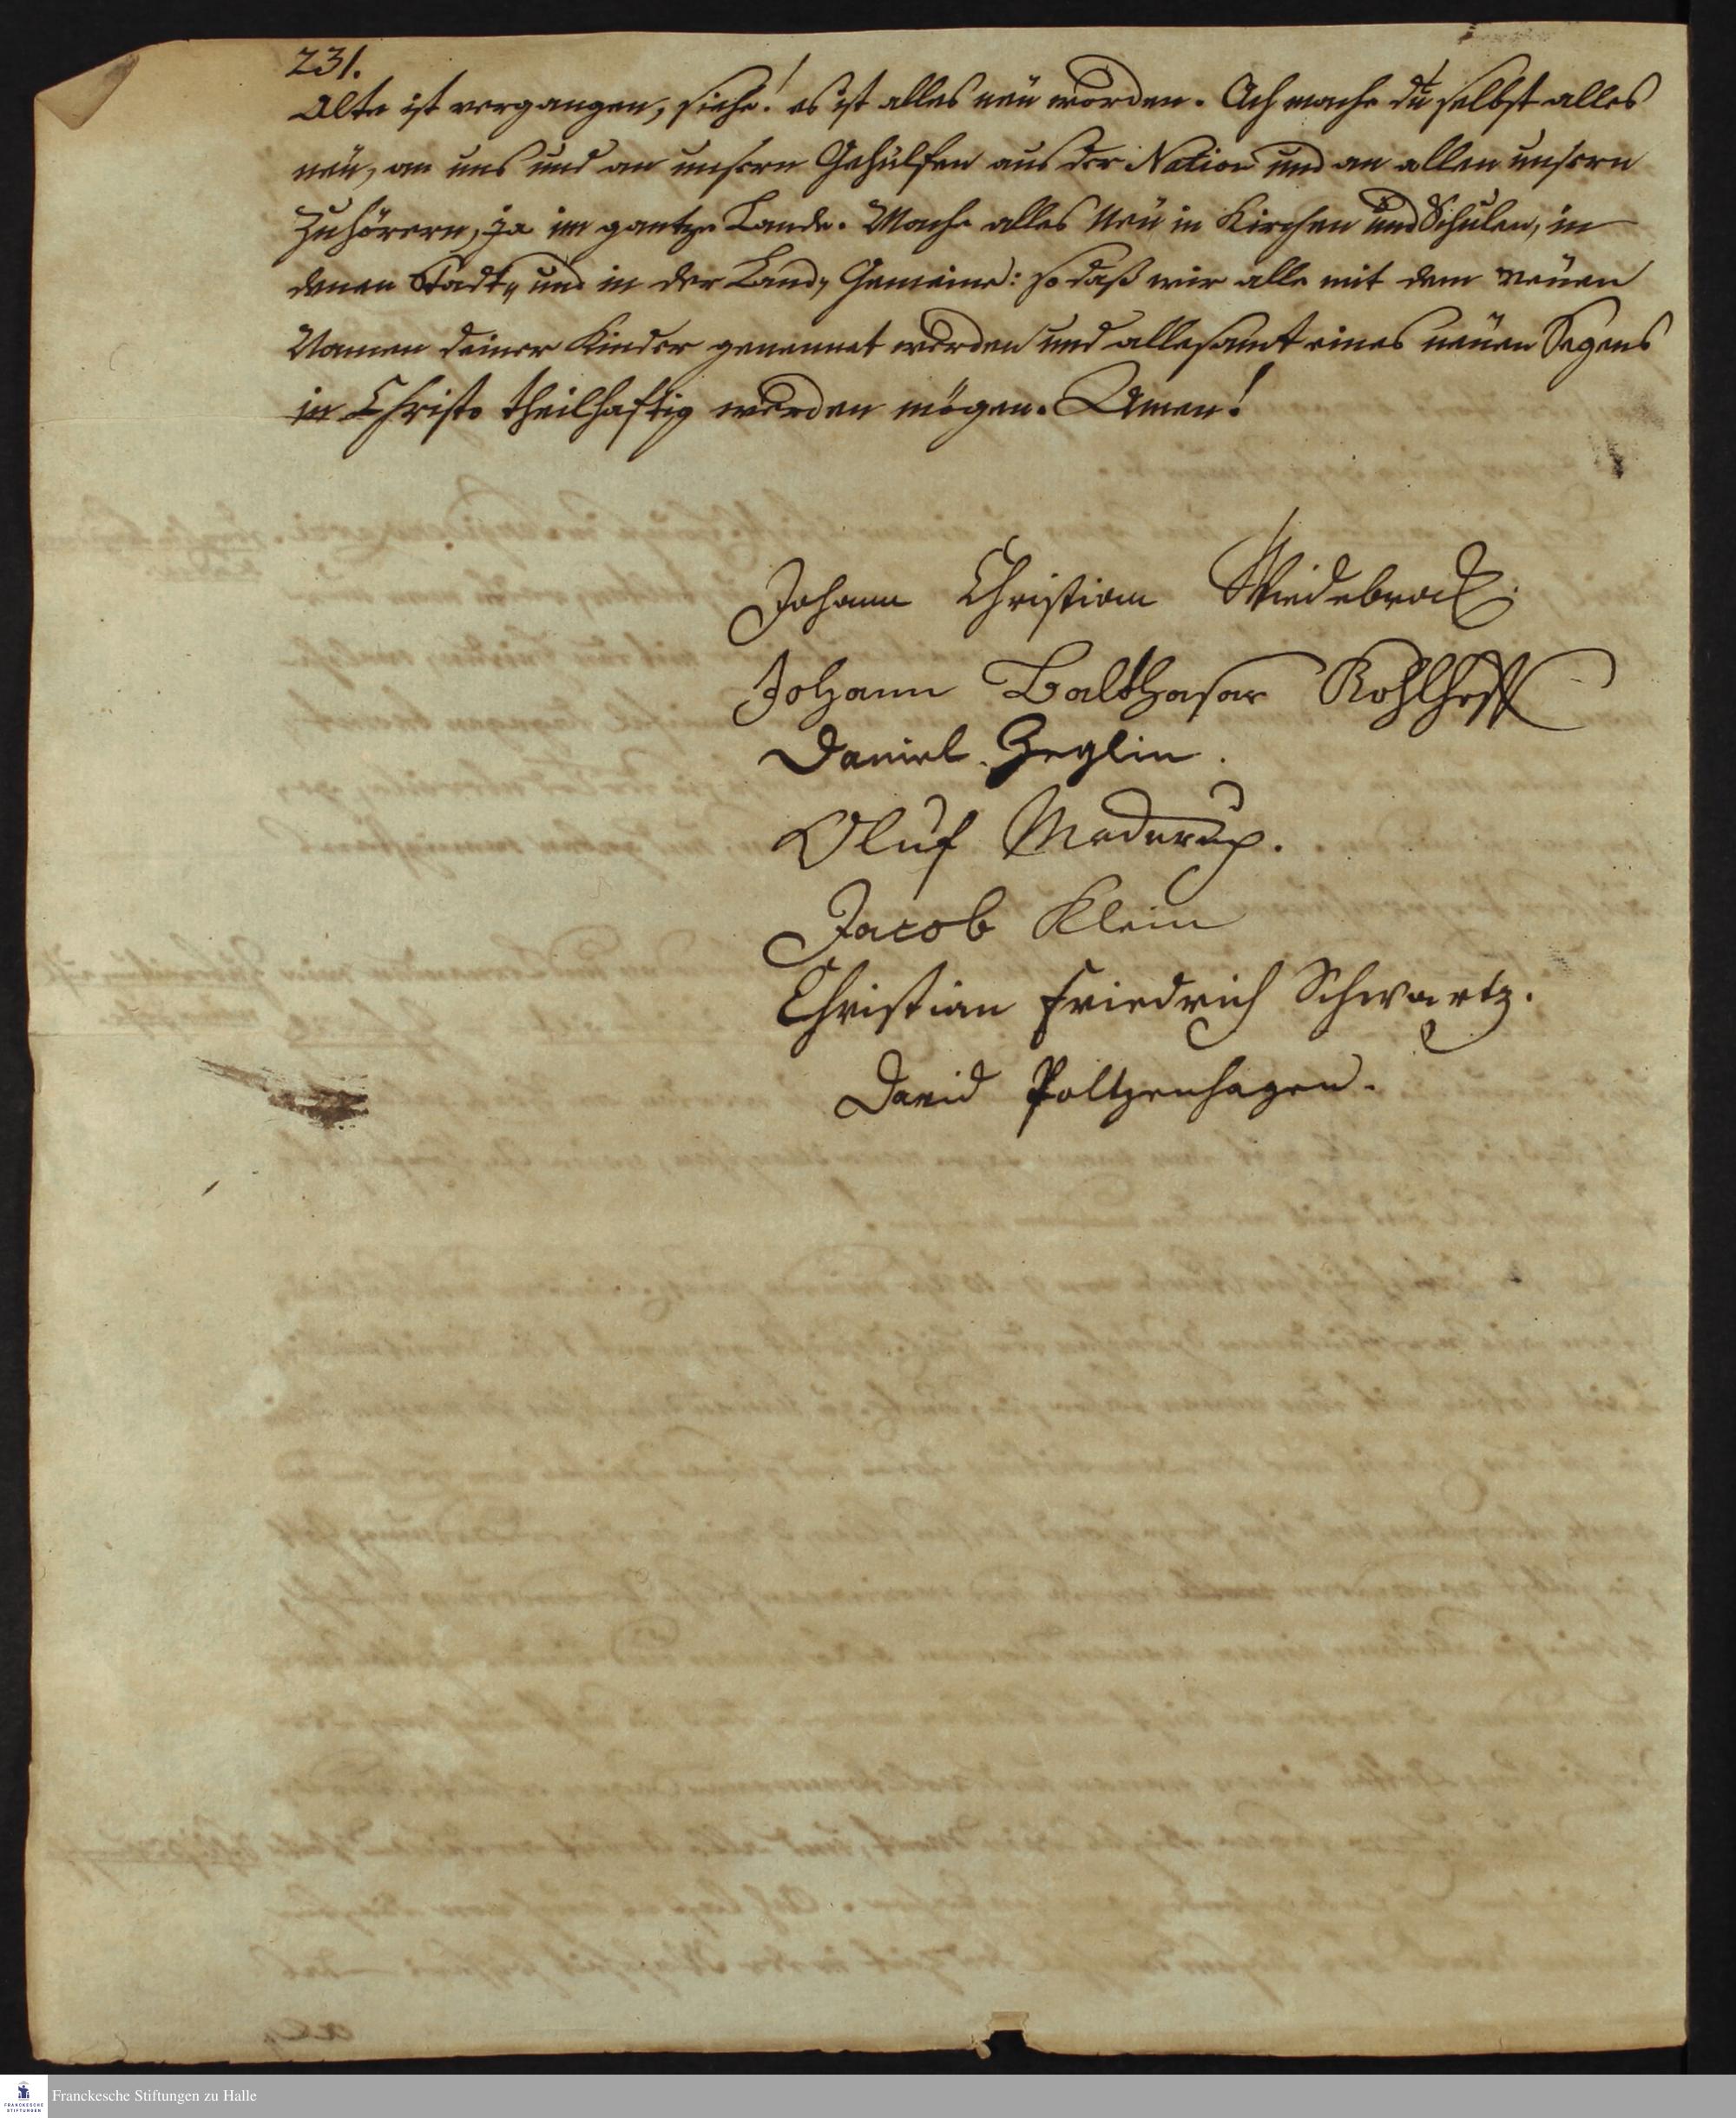 231.
Alte ist vergangen, siehe! es ist alles neü worden. Ach mache dü selbst alles
neü, an uns und an unsern Gehülfen aus der Nation und an allen unsern
Zuhörern, ja im gantze Lande. Mache alles Neü in Kirchen und Schulen, in
denen Stadt„ und in der Land„ Gemeine: so daß wir alle mit dem neüen
Namen deiner Kinder genennet werden und allesamt eines neüen Segens
in Christo theilhaftig werden mögen. Amen!
Johann Christian Wiedebrock.
Johann Balthasar Kohlhoff
Daniel Zeglin.
Oluf Maderup.
Jacob Klein
Christian Friedrich Schwartz.
David Poltzenhagen.
Franckesche Stiftungen zu Halle
FRANCKESCHE
STIFTUNGEN